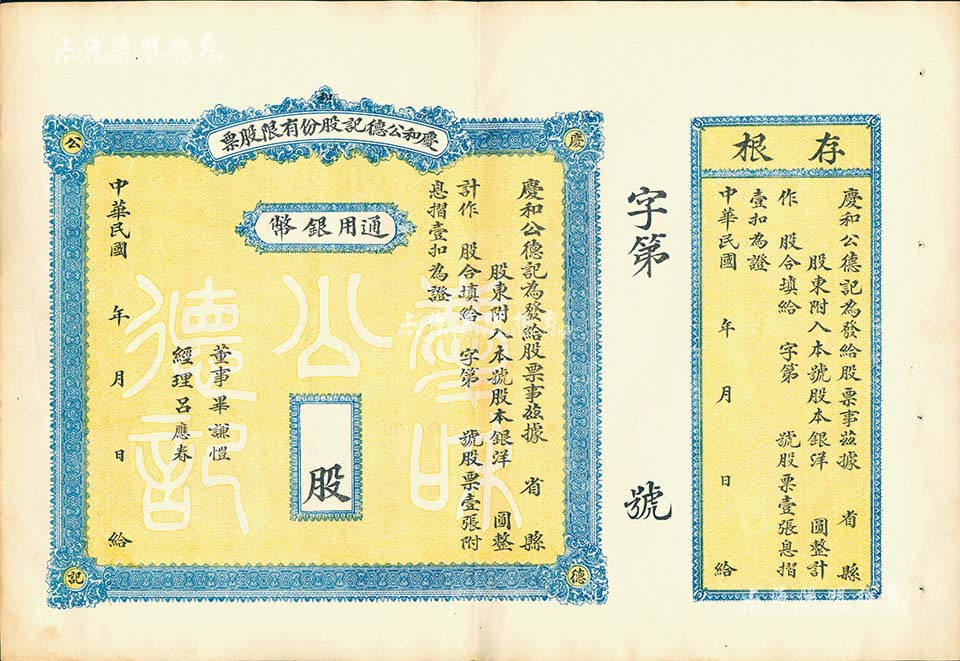 存根
慶和公德記為發給股票事茲據 省 縣
股東附入本號股本銀洋 圓整計
作 股合填給 字第 號股票壹張息摺
壹扣為證
中華民國 年 月 日 給
字第 號
慶和公德記股份有限股票
和
慶
公
德
記
通用銀幣
慶和公德記為發給股票事茲據 省 縣
股東附入本號股本銀洋 圓整
計作 股合填給 字第 號股票壹張附
息摺壹扣為證
股
董事畢謙愷
經理呂應春
中華民國 年 月 日 給
慶和
公
德記
上海陽明拍賣
上海陽明拍賣
上海陽明拍賣